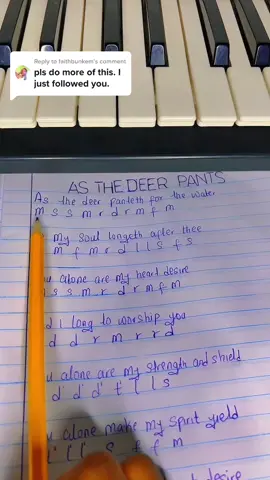 Reply to faithbunkem's comment
pls do more of this. I
just followed you.
AS THE DEER PANTS
As the deer panteth for the water
m s s m r d r m f m
my soul longeth after thee
m f m r d l l s f s
alone are my heart desire
s s m r d r m f m
I long to worship you
d d r m r r d
u alone are my strength and shield
d' d' d' t' l l s
u alone make my spirit yield
l' l l s f f m
desire